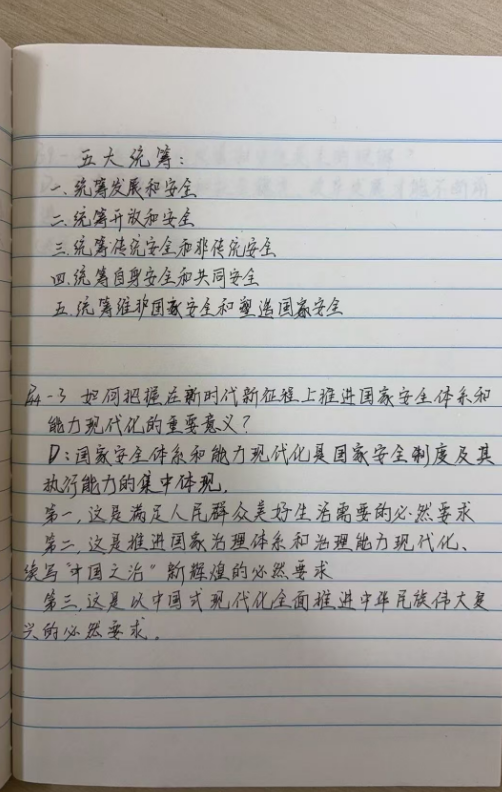 五大统筹：
一、统筹发展和安全
二、统筹开放和安全
三、统筹传统安全和非传统安全
四、统筹自身安全和共同安全
五、统筹维护国家安全和塑造国家安全
-3 如何把握在新时代新征程上推进国家安全体系和
能力现代化的重要意义？
D：国家安全体系和能力现代化是国家安全制度及其
执行能力的集中体现。
第一，这是满足人民群众美好生活需要的必然要求
第二，这是推进国家治理体系和治理能力现代化、
续写“中国之治”新辉煌的必然要求
第三，这是以中国式现代化全面推进中华民族伟大复
兴的必然要求。